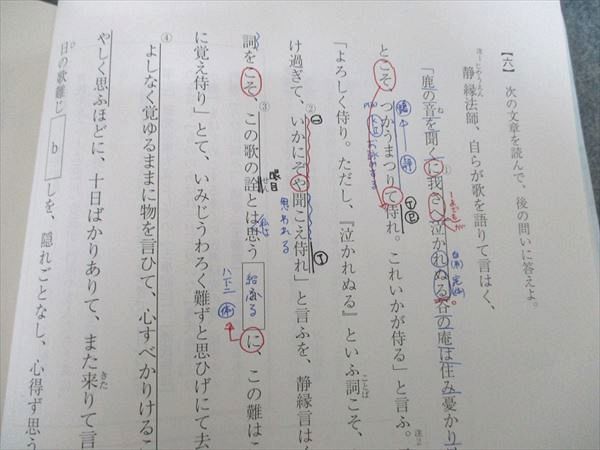 【六】 次の文章を読んで、後の問いに答えよ。
静縁法師、自らが歌を語りて言はく、
「鹿の音を聞くに我さへ泣かれぬる谷の庵は住み憂かり
とこそ、つかうまつりて侍れ。これいかが侍る」と言ふ。
「よろしく侍り。ただし、『泣かれぬる』といふ詞こそ、
け過ぎて、いかにぞや聞こえ侍れ」と言ふを、静縁言は
詞をこそ、この歌の詮とは思う給ふるに、この難はこ
に覚え侍り」とて、いみじうわろく難ずと思ひげにて去
よしなく覚ゆるままに物を言ひて、心すべかりけるこ
やしく思ふほどに、十日ばかりありて、また来りて言
日の歌難じ b しを、隠れごとなし、心得ず思う